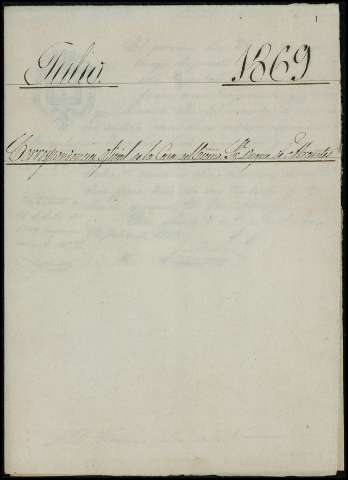 1
Julio. 1869
Correspondencia oficial de la Casa del Excmo. Sr. Duque de Abrantes